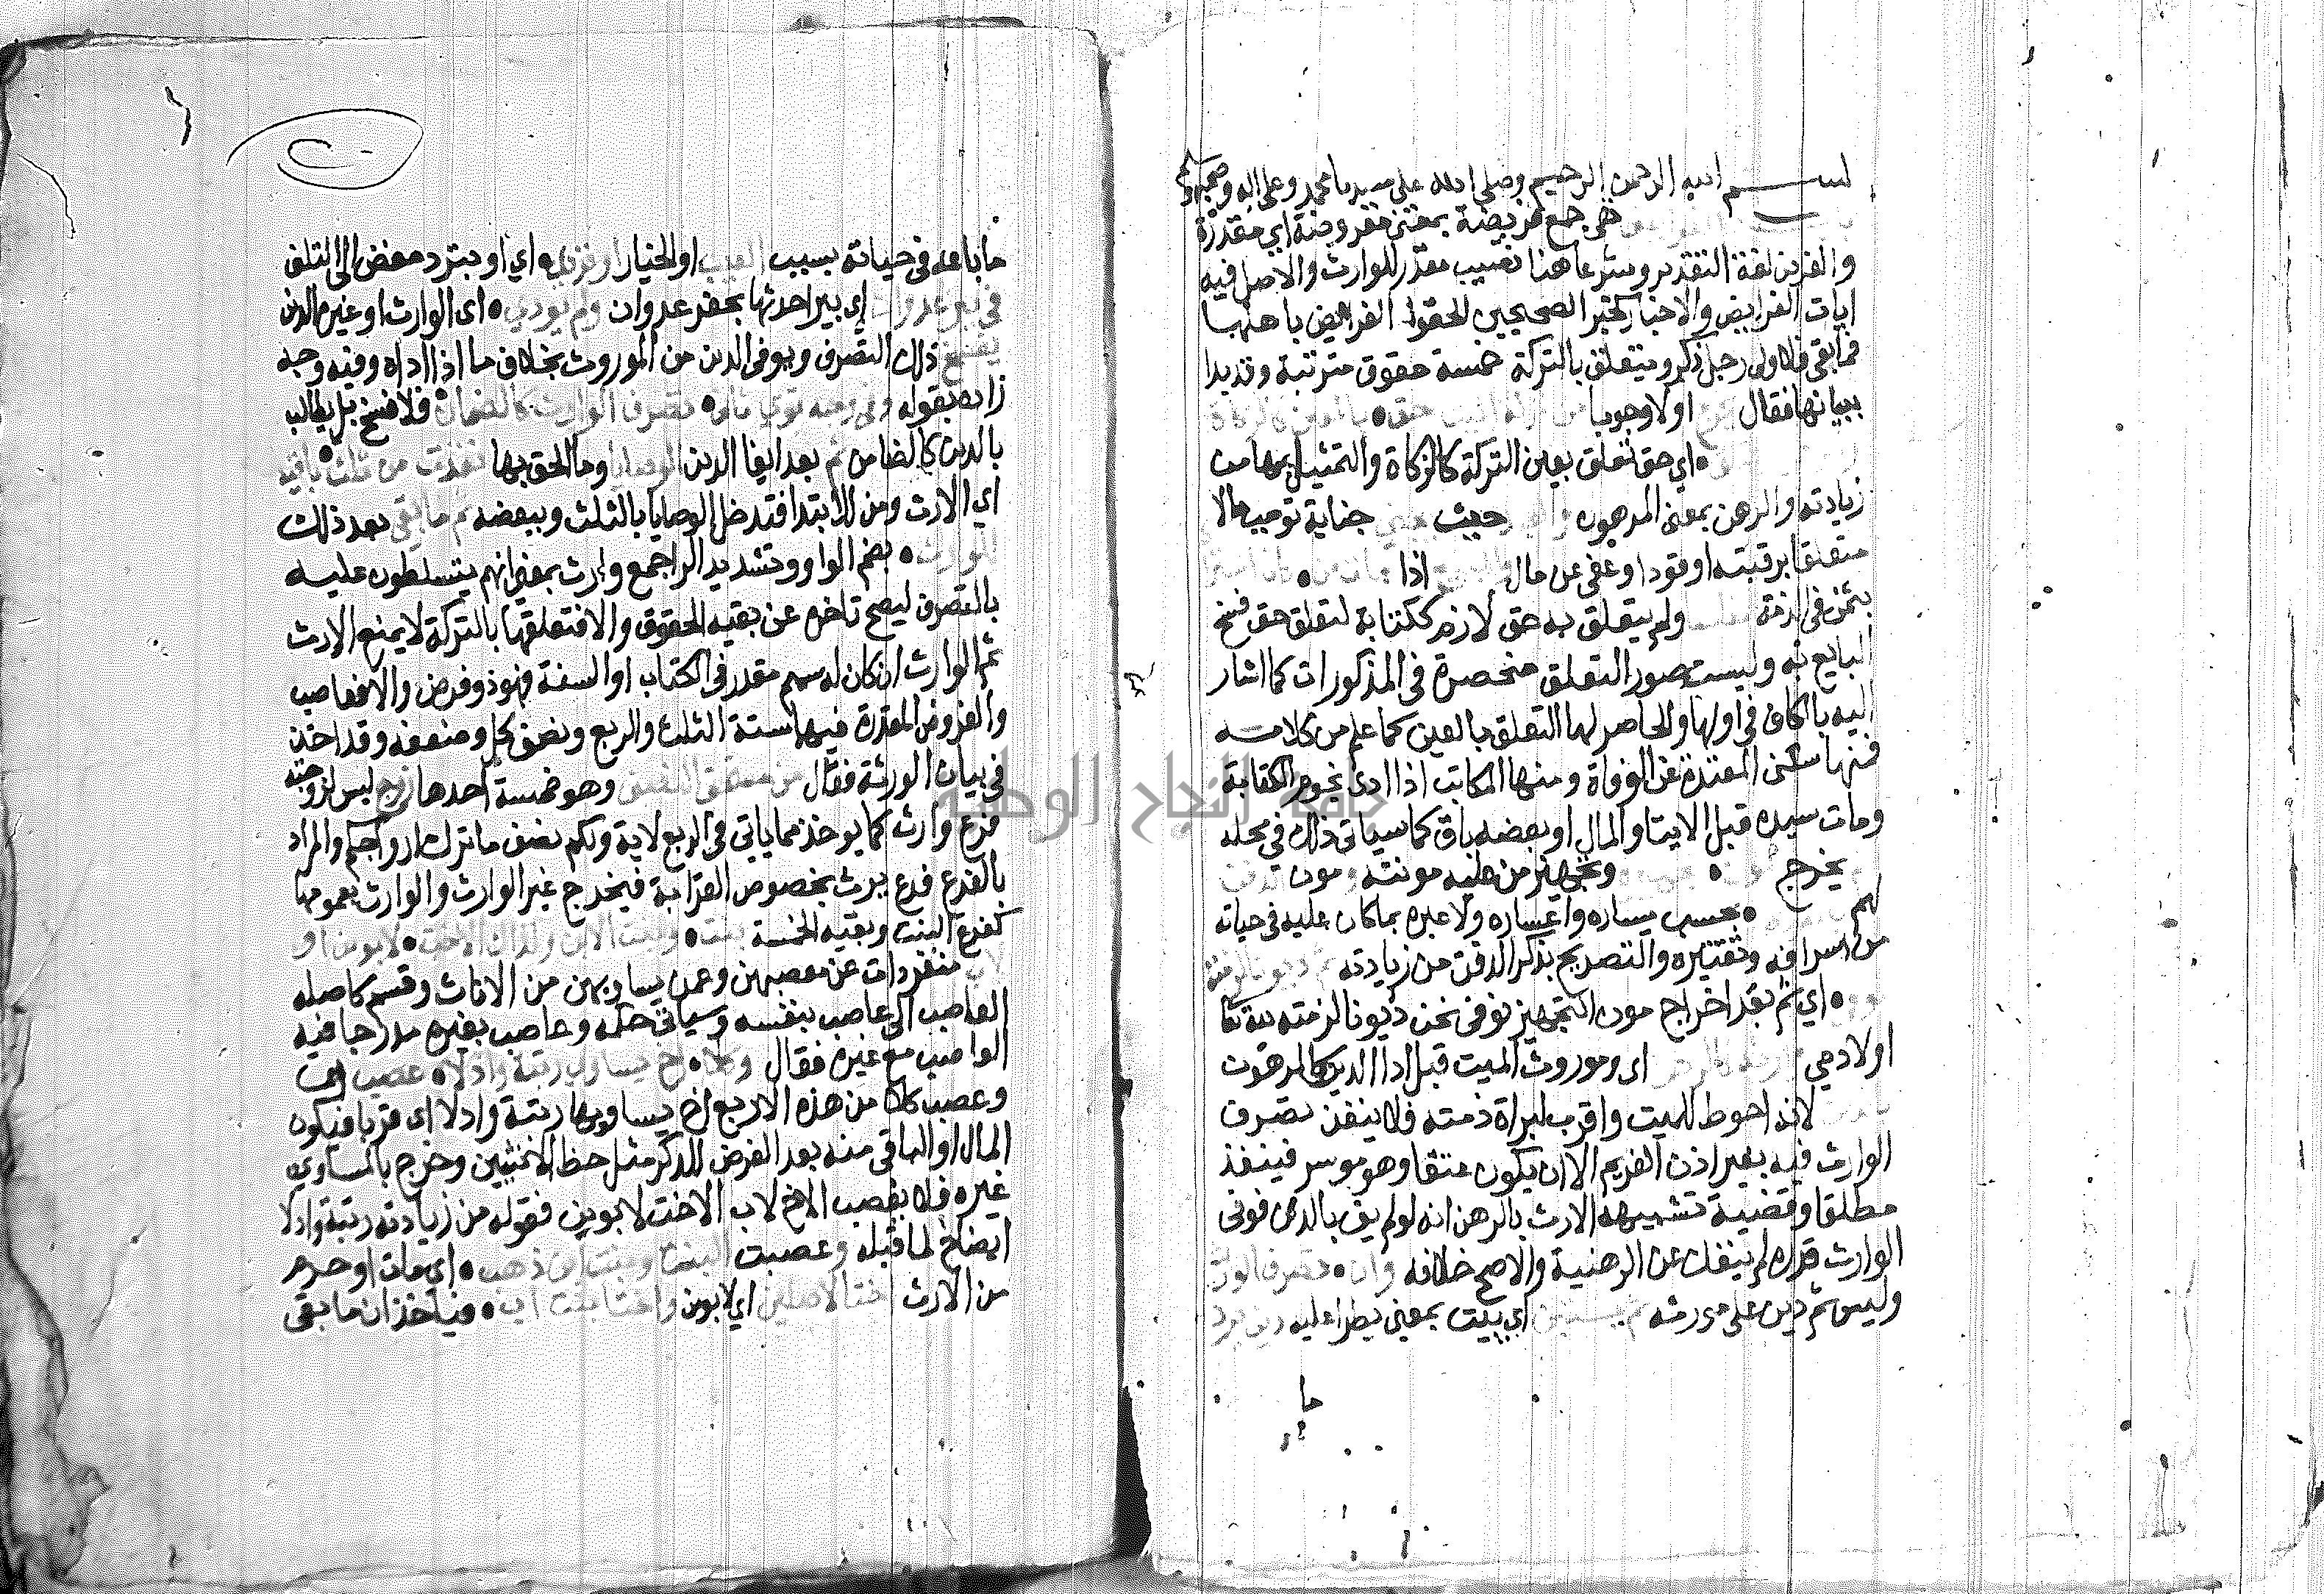 بسم الله الرحمن الرحيم وصلى الله على سيدنا محمد وعلى اله وصحبه وسلم
هي جمع فريضة بمعنى مفروضة اي مقدرة
والفرض لغة التقدير وشرعا هنا نصيب مقدر للوارث والاصل فيه
ايات الفرايض والاخبار كخبر الصحيحين الحقوا الفرايض باهلها
فما بقي فلاولى رجل ذكر ويتعلق بالتركة خمسة حقوق مترتبة وقد بدا
ببيانها فقال اولا وجوبا
اي حق تعلق بعين التركة كالزكاة والتمثيل بها من
زيادته والرهن بمعنى المرهون حيث جناية توجب مالا
متعلقا برقبته او قودا وعفي عن مال اذا
بثمن في الذمة ولم يتعلق به حق لازم ككتابة لتعلق حق فسخ
البايع به وليست صور التعلق منحصرة في المذكورات كما اشار
اليه بالكاف في اولها والحاصر لها التعلق بالعين كما علم من كلامه
فمنها سكنى المعتدة عن الوفاة ومنها المكاتب اذا ادى نجوم الكتابة
ومات سيده قبل الايتا والمال او بعضه باق كما سياتي ذلك في محله
يخرج وتجهيز من عليه مونته مون
لهم بحسب يساره واعساره ولا عبره بما كان عليه في حياته
من اسرافه وتقتيره والتصريح بذكر الدفن من زيادته
اي ثم بعد اخراج مون التجهيز نوفي نحن ديونا لزمته لله تعا
او لادمي اى وموروث الميت قبل ادا الدين كالمرهون
لانه احوط للميت واقرب لبراة ذمته فلا ينفذ تصرف
الوارث فيه بغير اذن الغريم الا ان يكون عتقا وهو موسر فينفذ
مطلقا وقضية تشبيهه الارث بالرهن انه لو لم يف بالدين فوفى
الوارث قدره لم ينفك عن الرهنية والاصح خلافه وان تصرف الوارث
وليس ثم دين على مورثه اي يثبت بمعنى يطرا عليه دين برد
ما
ما باعه في حياته بسبب العيب او الخيار او تردي اي او بتردٍ مفض الى التلف
في بير عدوان اي بير احدثها بحفر عدوان ولم يودي اى الوارث او غيره الدين
يفسخ ذلك التصرف ويوفى الدين من الموروث بخلاف ما اذا اداه وفيه وجه
زاده بقوله تصرف الوارث كالضمان فلا فسخ بل يطالب
بالدين كالضامن ثم بعد ايفا الدين الوصايا وما الحق بها نفذت من ثلث باقيه
اي الارث ومن للابتدا فتدخل الوصايا بالثلث وببعضه ثم ما بقي بعد ذلك
للوارث بضم الواو وتشديد الرا جمع وارث بمعنى انهم يتسلطون عليه
بالتصرف ليصح تاخره عن بقيه الحقوق والا فتعلقها بالتركة لا يمنع الارث
ثم الوارث ان كان له سهم مقدر في الكتاب او السنة فهو ذو فرض والا فعاصب
والفروض المقدرة فيها ستة الثلث والربع ونصف كل وضعفه وقد اخذ
في بيان الورثة فقال من مستحق النصف وهو خمسة احدها زوج ليس لزوجته
فرع وارث كما يوخذ مما ياتي في الربع لاية ولكم نصف ما ترك ازواجكم والمراد
بالفرع فرع يرث بخصوص القرابة فيخرج غير الوارث والوارث بعمومها
كفرع البنت وبقيه الخمسة بنت وبنت الابن وكذاك الاخت لابوين او
لاب منفردات عن معصبهن وعمن يساويهن من الاناث وقسم كاصله
العاصب الى عاصب بنفسه وسياتي حكمه وعاصب بغيره مدرجا فيه
العاصب مع غيره فقال وكلا اخ يساوي رتبة وادلاء عصب
وعصب كلا من هذه الاربع اخ يساويها رتبة وادلا اى قربا فيكون
المال او الباقي منه بعد الفرض للذكر مثل حظ الانثيين وخرج بالمساوي
غيره فلا يعصب الاخ لاب الاخت لابوين فقوله من زيادته رتبة وادلا
ايضاح لما قبله وعصبت البنت وبنت ابن ذهب اي مات او حرم
من الارث اختا لاصلين اي لابوين واختا بنت اب فياخذان ما بقي
جامعة النجاح الوطنية